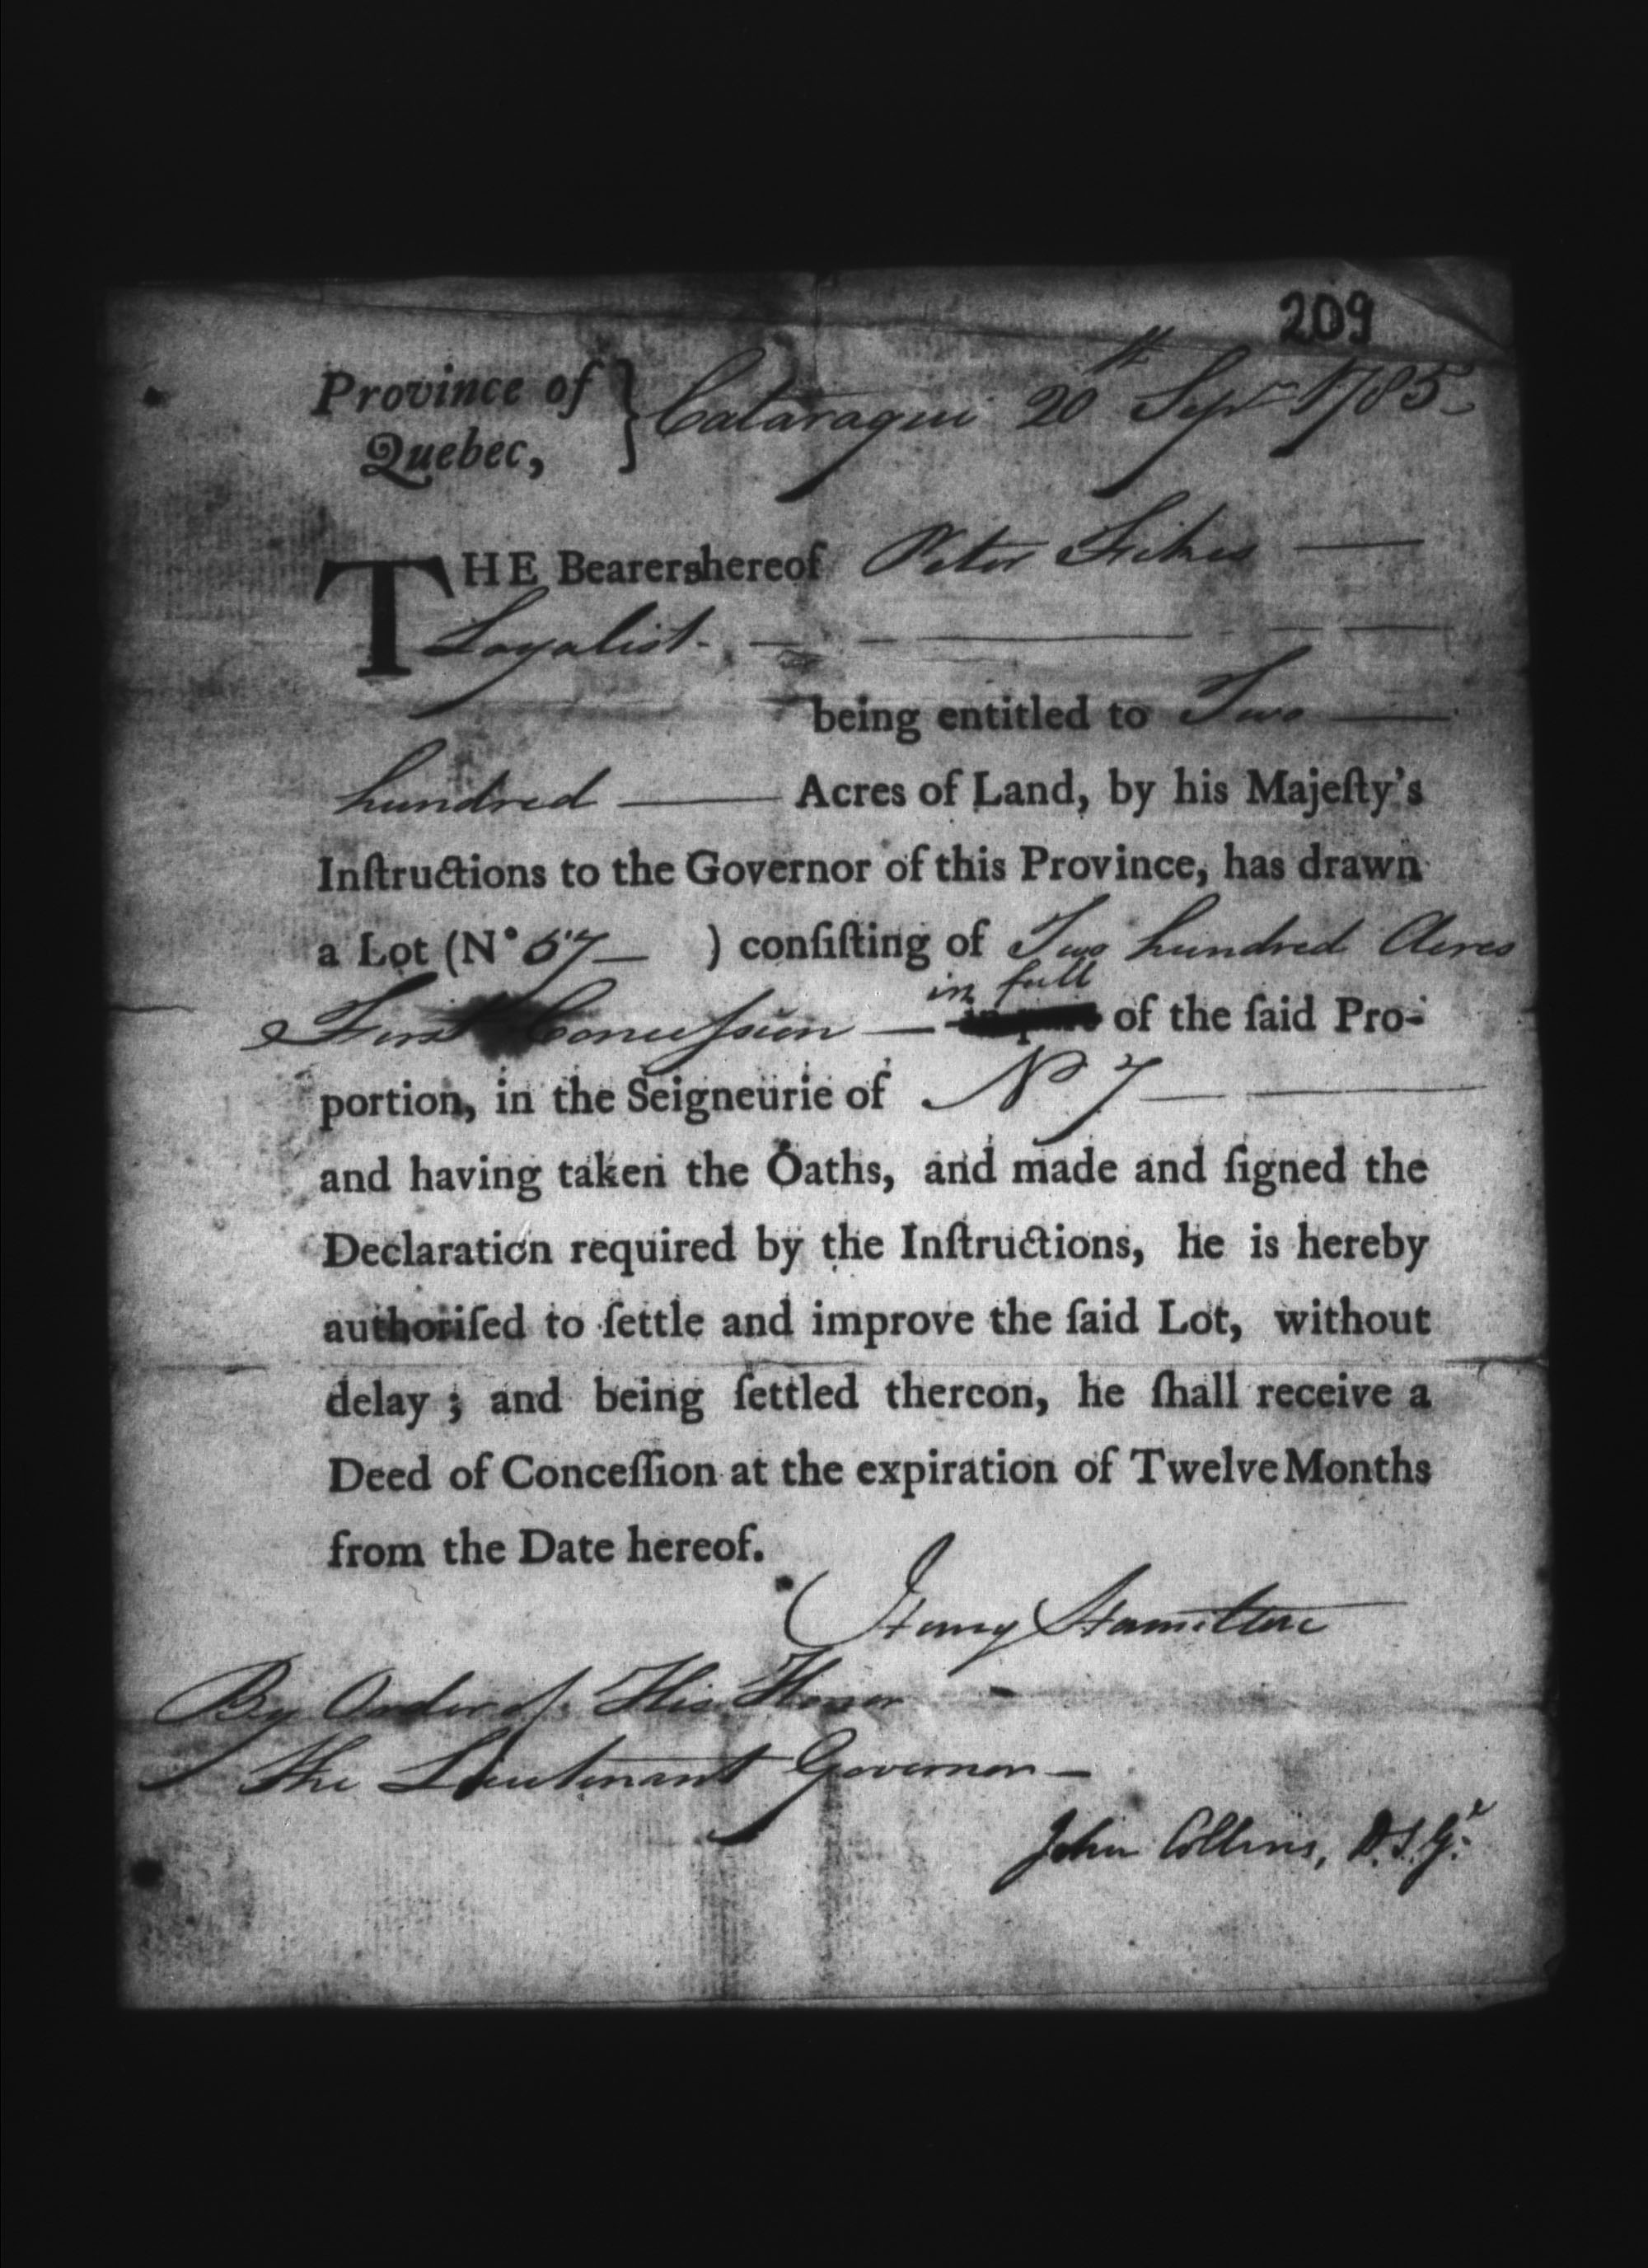 209
Province of } Cataraqui 20th Sepr 1785
Quebec,
THE Bearers hereof Peter
Loyalist.
being entitled to Two
hundred Acres of Land, by his Majeſty's
Inſtructions to the Governor of this Province, has drawn
a Lot (N° 57 ) conſiſting of Two hundred Acres
in full
First Conceſsion of the ſaid Pro-
portion, in the Seigneurie of No 7
and having taken the Oaths, and made and ſigned the
Declaration required by the Inſtructions, he is hereby
authoriſed to ſettle and improve the ſaid Lot, without
delay; and being ſettled thereon, he ſhall receive a
Deed of Conceſſion at the expiration of Twelve Months
from the Date hereof.
Henry Hamilton
By Order of His Honor
the Lieutenant Governor
John Collins, D.S.Gl.